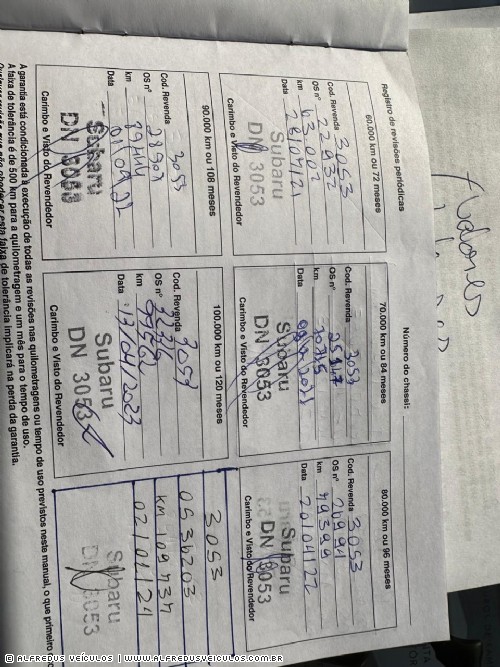 Número do chassi:
Registro de revisões periódicas
60.000 km ou 72 meses
Cod. Revenda 3053
OS nº 22932
km 63.002
Data 26/07/21
Subaru
DN 3053
Carimbo e Visto do Revendedor
70.000 km ou 84 meses
Cod. Revenda 3053
OS nº
km
Data
Subaru
DN 3053
Carimbo e Visto do Revendedor
80.000 km ou 96 meses
Cod. Revenda 3053
OS nº
km 79399
Data 20/04/22
Subaru
DN 3053
Carimbo e Visto do Revendedor
90.000 km ou 108 meses
Cod. Revenda 3053
OS nº
km
Data
Subaru
DN 3053
Carimbo e Visto do Revendedor
100.000 km ou 120 meses
Cod. Revenda 3053
OS nº
km
Data 13/04/2023
Subaru
DN 3053
Carimbo e Visto do Revendedor
3053
OS 36203
km 109434
02/01/24
Subaru
DN 3053
A garantia está condicionada à execução de todas as revisões nas quilometragens ou tempo de uso previstos neste manual, o que primeiro
A faixa de tolerância é de 500 km para a quilometragem e um mês para o tempo de uso.
faixa de tolerância implicará na perda da garantia.
© ALFREDUS VEÍCULOS | WWW.ALFREDUSVEICULOS.COM.BR